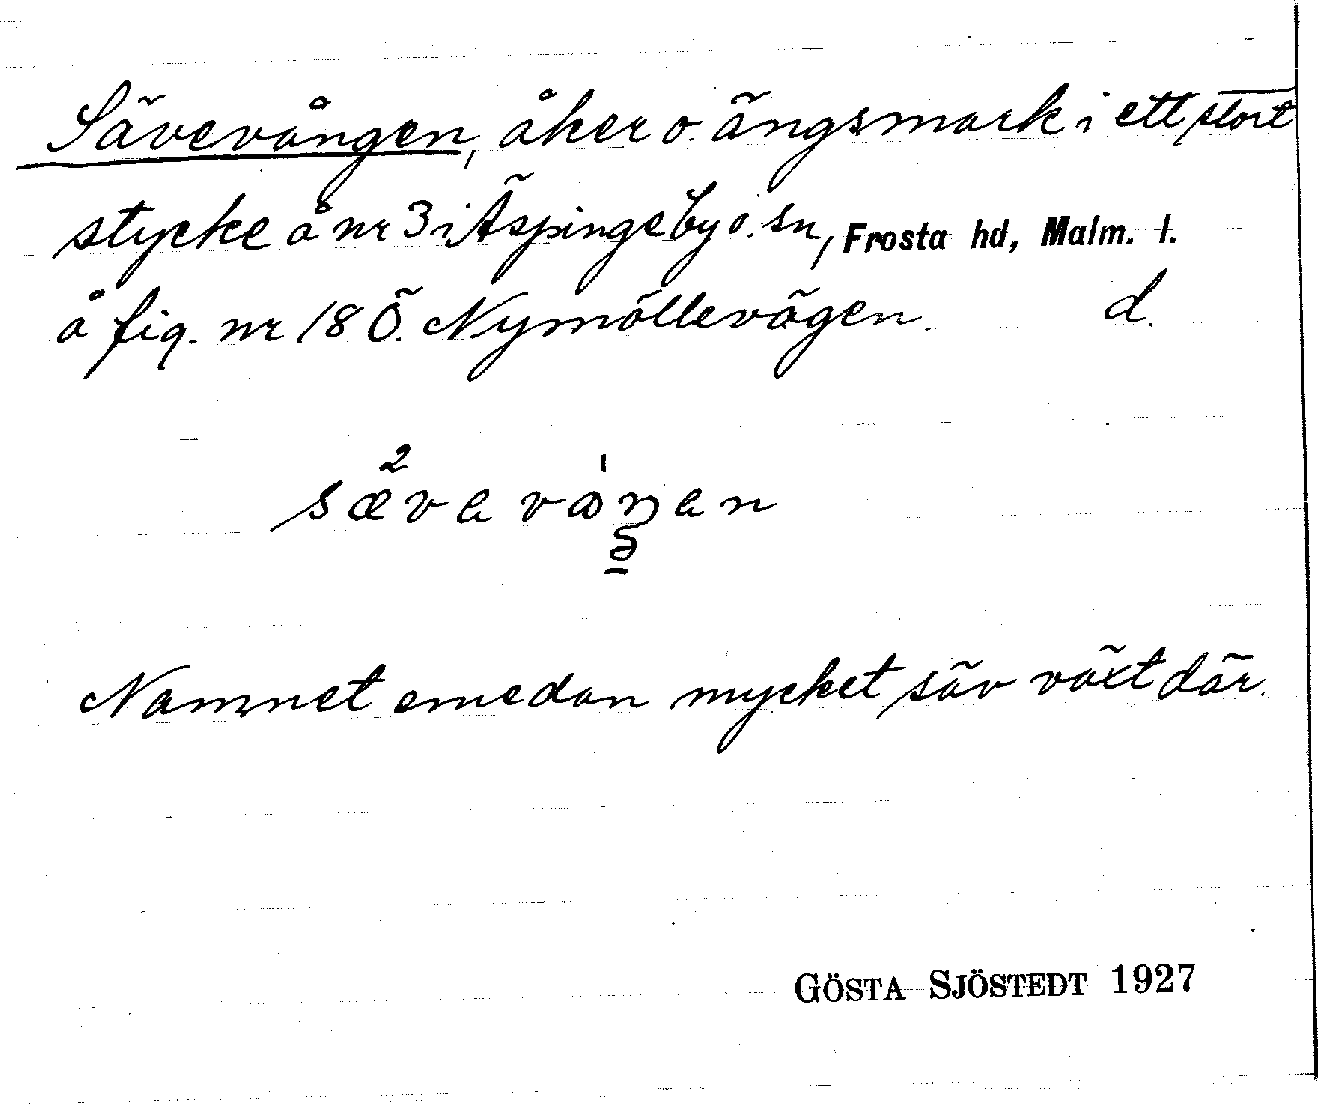 Sävevången, åker o. ängsmark i ett stort
stycke å nr 3 i Äspinge by o. sn, Frosta hd, Malm. l.
å fig. nr 18 Ö. Nymöllevägen. d.
sævavåŋan
ə
Namnet emedan mycket säv växt där.
GÖSTA SJÖSTEDT 1927